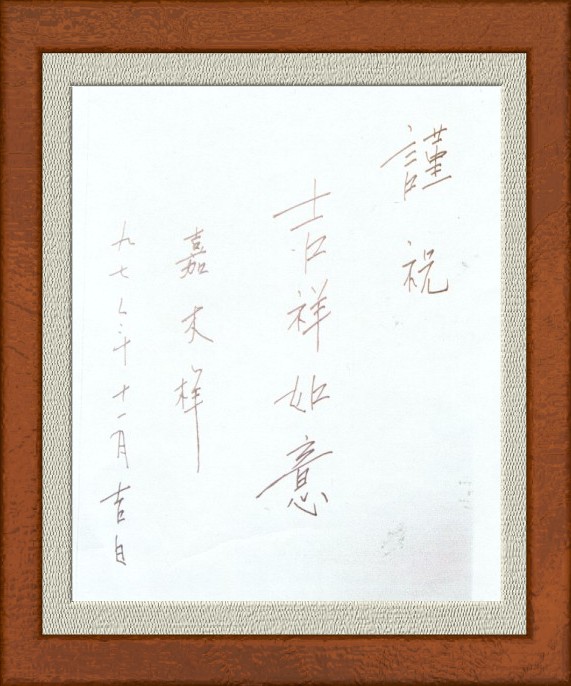 謹祝
吉祥如意
嘉木样
九七年十一月吉日